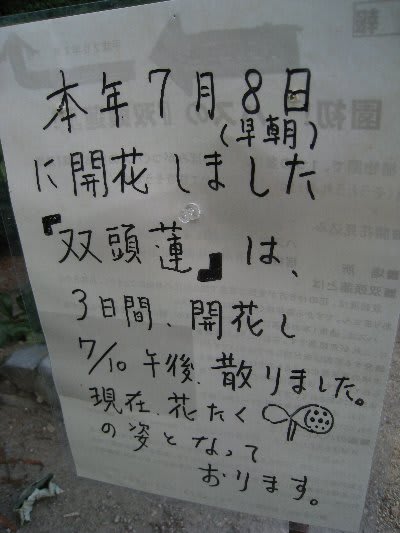 本年7月8日
(早朝)
に開花しました
『双頭蓮』は、
3日間、開花し
7/10 午後、散りました。
現在、花たく
の姿となって
おります。